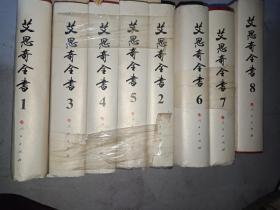 艾思奇全书
1
艾思奇全书
3
艾思奇全书
4
艾思奇全书
5
艾思奇全书
2
艾思奇全书
6
艾思奇全书
7
艾思奇全书
8